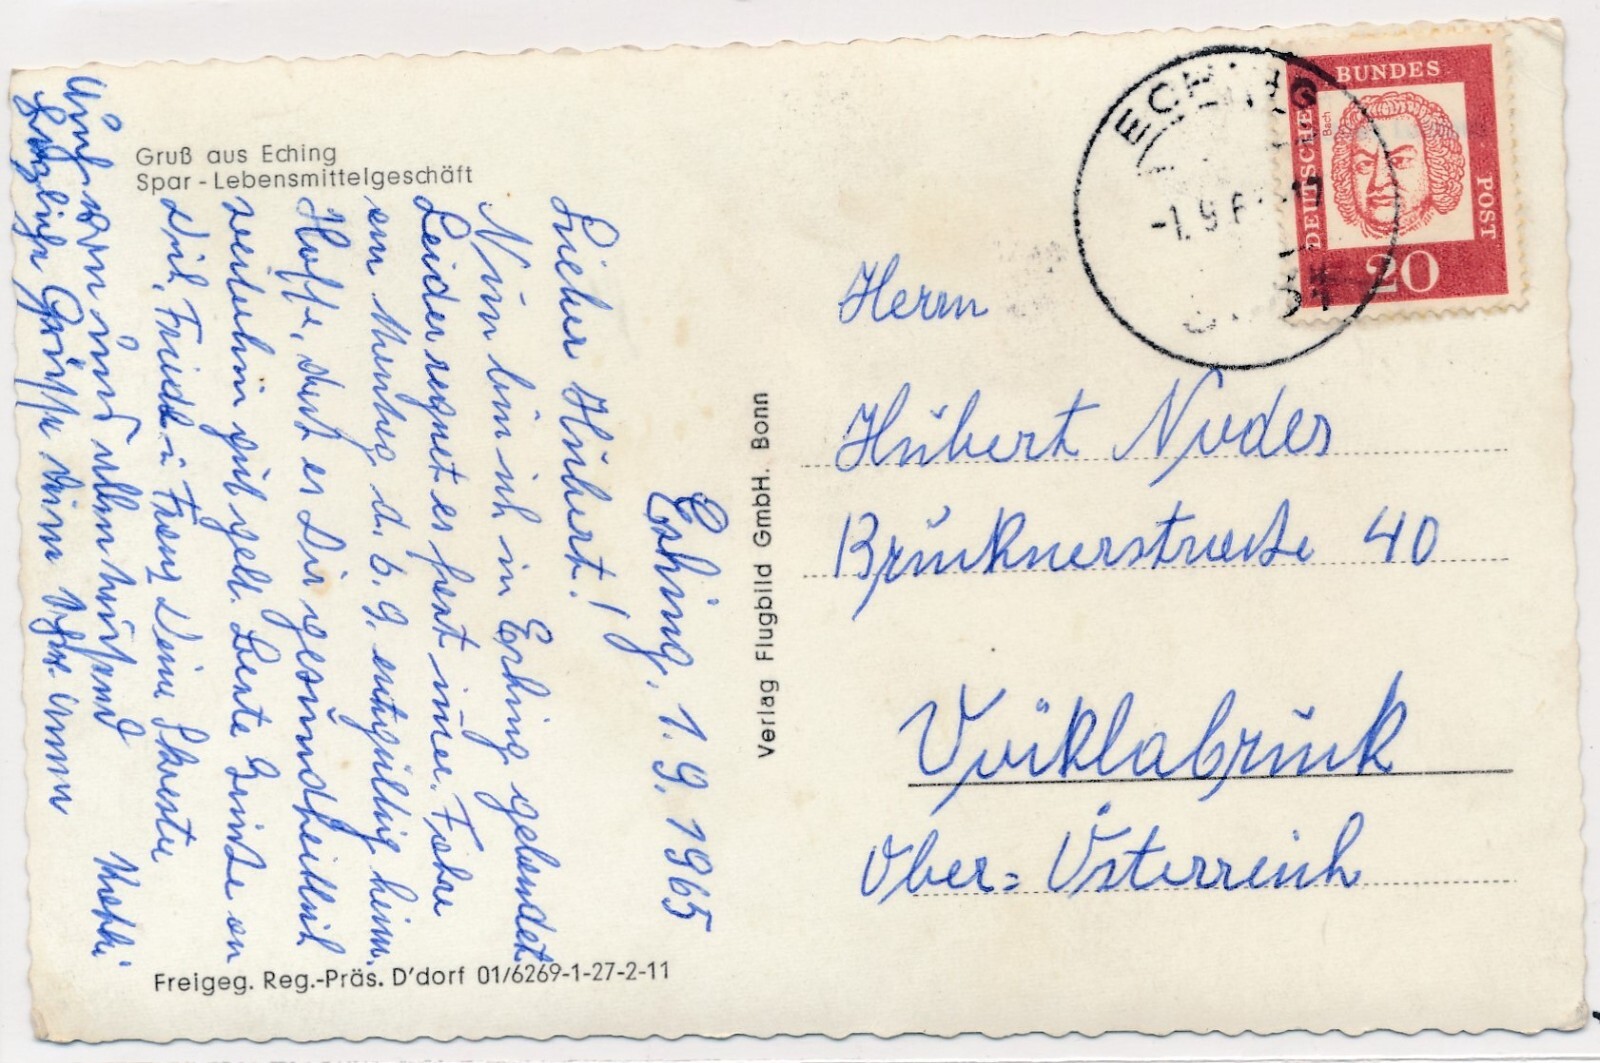 Gruß aus Eching
Spar - Lebensmittelgeschäft
Eching, 1. 9. 1965
Lieber Hubert!
Nun bin ich in Eching gelandet
Leider regnet es fast immer. Fahre
am d. 6. 9. endgültig heim.
Hoffe, daß es Dir gesundheitlich
weiterhin gut geht. Beste Grüße an
Dich, Friedl u. Deine Schwester
Herzliche Grüße
Verlag Flugbild GmbH. Bonn
Freigeg. Reg.-Präs. D'dorf 01/6269-1-27-2-11
ECHING
-1. 9. 6
DEUTSCHE BUNDES POST
Bach
20
Herrn
Hubert Nuder
Brucknerstraße 40
Vöcklabruck
Ober=Österreich